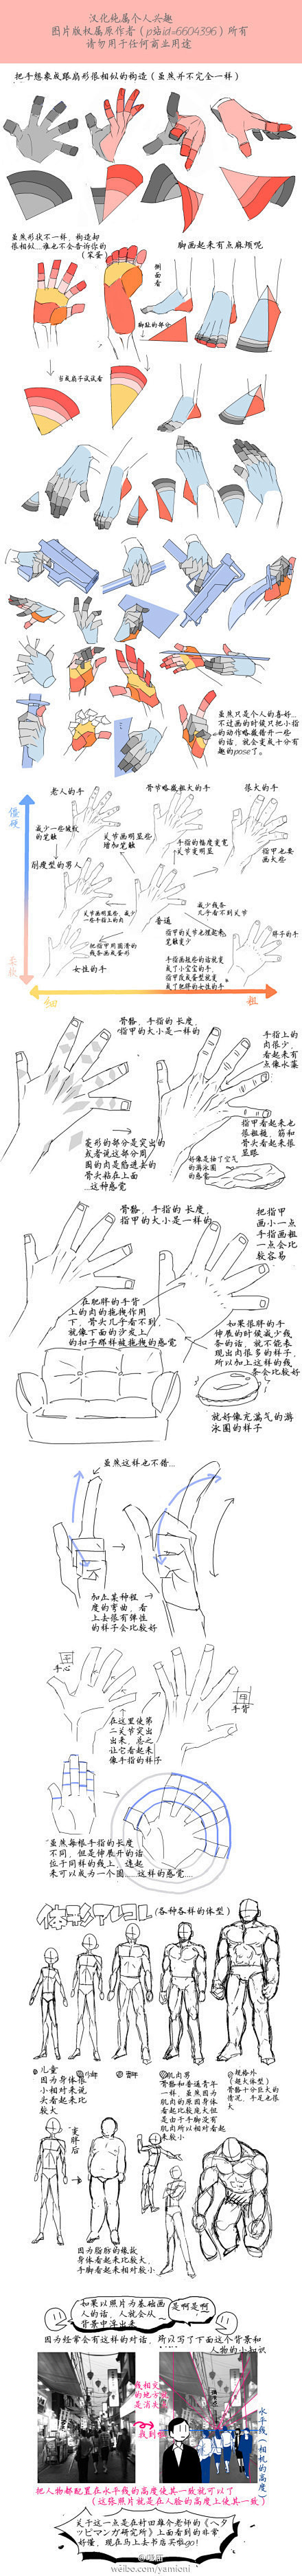 汉化纯属个人兴趣
图片版权属原作者（p站id=6604396）所有
请勿用于任何商业用途
把手想象成跟扇形很相似的构造（虽然并不完全一样）
虽然形状不一样，构造却
很相似...谁也不会告诉你的
（笨蛋）
脚画起来有点麻烦呢
侧面看
脚趾的部分
当成扇子试试看
虽然只是个人的喜好...
不过画的时候只把小指
的动作略微错开一些
的话，就会变成十分有
趣的pose了。
僵硬
老人的手
骨节略微粗大的手
很大的手
减少一些皱纹
的笔触
关节画明显些
增加笔触
手指的幅度变宽
关节变明显
指甲也要
画大些
削瘦型的男人
关节画明显些，减少
一些手指上的肉
普通
减少线条
几乎看不到关节
指甲的关节也埋起来
笔触变少
胖子的手
把指甲用圆滑的
线条画成蛋形
手指画短些的话就变
成了小宝宝的手，
指甲改成蛋型就变
成了肥胖的女性的手
女性的手
柔软
细
粗
骨骼，手指的长度，
指甲的大小是一样的
手指上的
肉很少，
看起来有
点像水藻
指甲看起来也
很粗糙，筋和
骨头看起来很
显眼
菱形的部分是突出的
或者说这部分周
围的肉是陷进去的
骨头粘在上面
...这种感觉
好像是抽了空气
的游泳圈
的感觉
骨骼，手指的长度，
指甲的大小是一样的
把指甲
画小一点
手指画粗
一点会比
较容易
在肥胖的手背
上的肉的拖拽作用
下，骨头几乎看不到，
就像下面的沙发上
的扣子那样被拖拽的感觉
如果很胖的手
伸展的时候减少线
条的话，就不能表
现出肉很多的样子，
所以加上这样的线
条会比较好
就好像充满气的游
泳圈的样子
虽然这样也不错...
加点某种程
度的弯曲，看
上去很有弹性
的样子会比较好
手心
手背
在这里使第
二关节突出
出来，总之
让它看起来
像手指的样子
虽然每根手指的长度
不同，但是伸展开的话
位于同样的线上，连起
来可以成为一个圆......这样的感觉...
（各种各样的体型）
儿童
因为身体很
小相对来说
头看起来比
较大
少年
青年
肌肉男
骨骼和普通青年
一样，虽然因为
肌肉的原因身体
看起比较庞大但
是由于手脚没有
肌肉所以相对看起
来较小
规格外
（超大体型）
骨骼十分巨大的
情况，手足也很
大
变胖后
因为脂肪的缘故
身体看起来比较大，
手脚看起来相对较小
如果以照片为基础画
人的话，人就会从
背景中浮出来
是啊是啊
因为经常会有这样的对话，所以写了下面这个背景和
人物的小知识
线相交
的地方就
是消失点
找到哦
水平线（相机的高度）
把人物都配置在水平线的高度使其一致就可以了
（这张照片就是在人脸的高度上使其一致）
关于这一点是在村田雄介老师的《ヘタ
ッピマンガ研究所》上面看到的非常
好懂，现在马上去书店买啦go!
weibo.com/yamieni